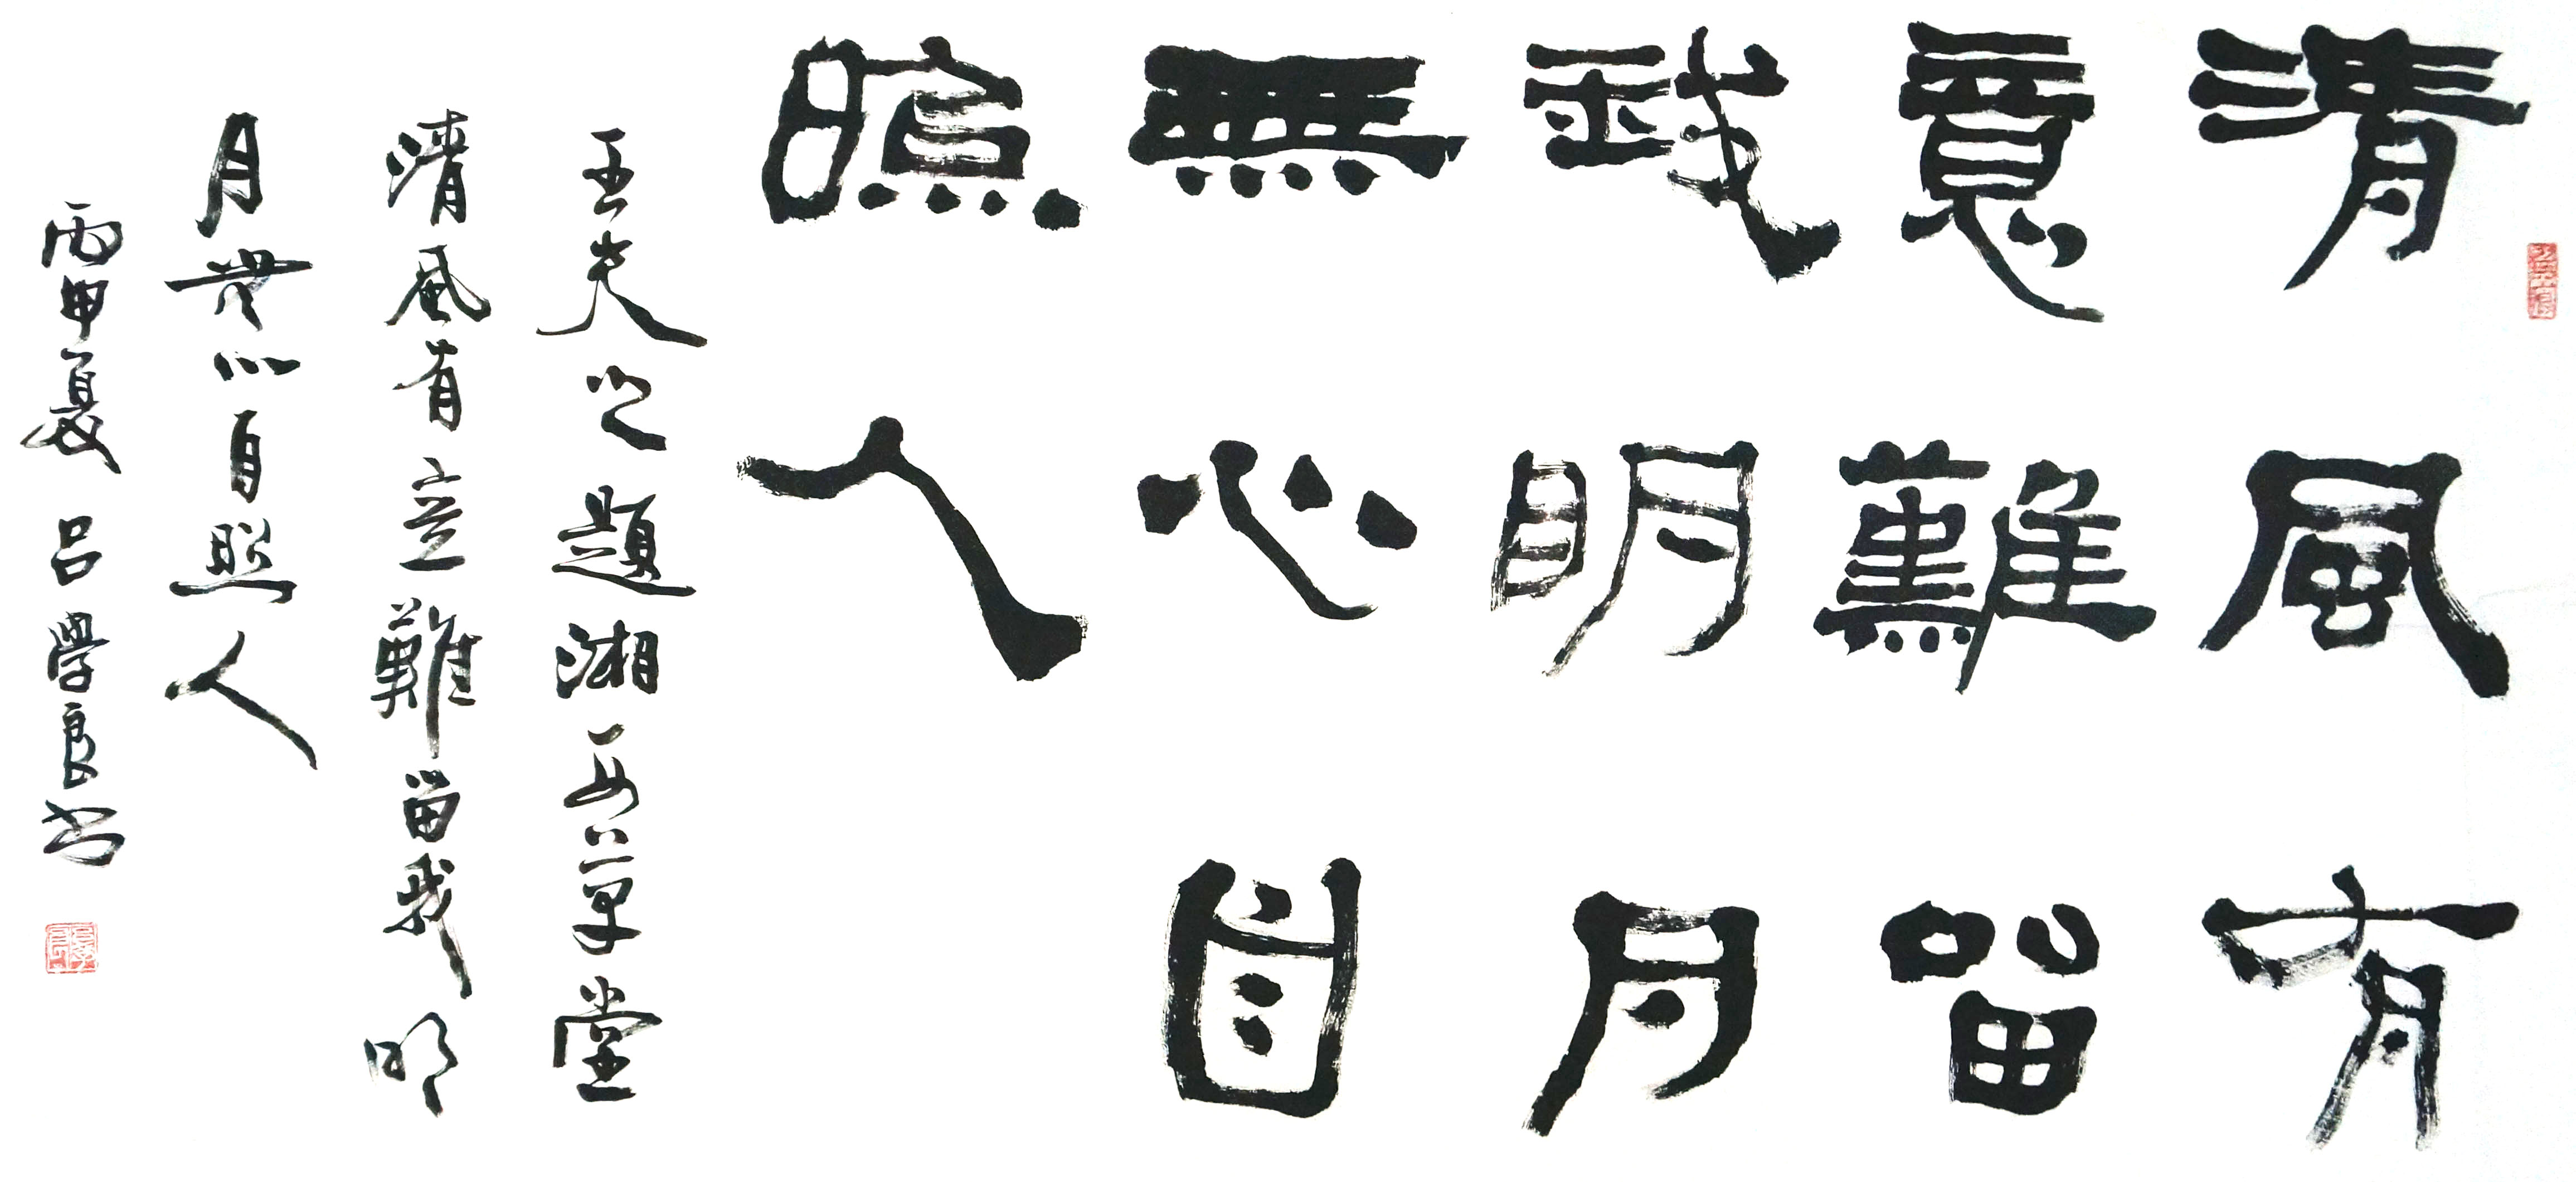 清風有
意難留
我明月
無心自
照人
王夫之題湘西草堂
清風有意難留我明
月無心自照人
丙申夏呂學良书